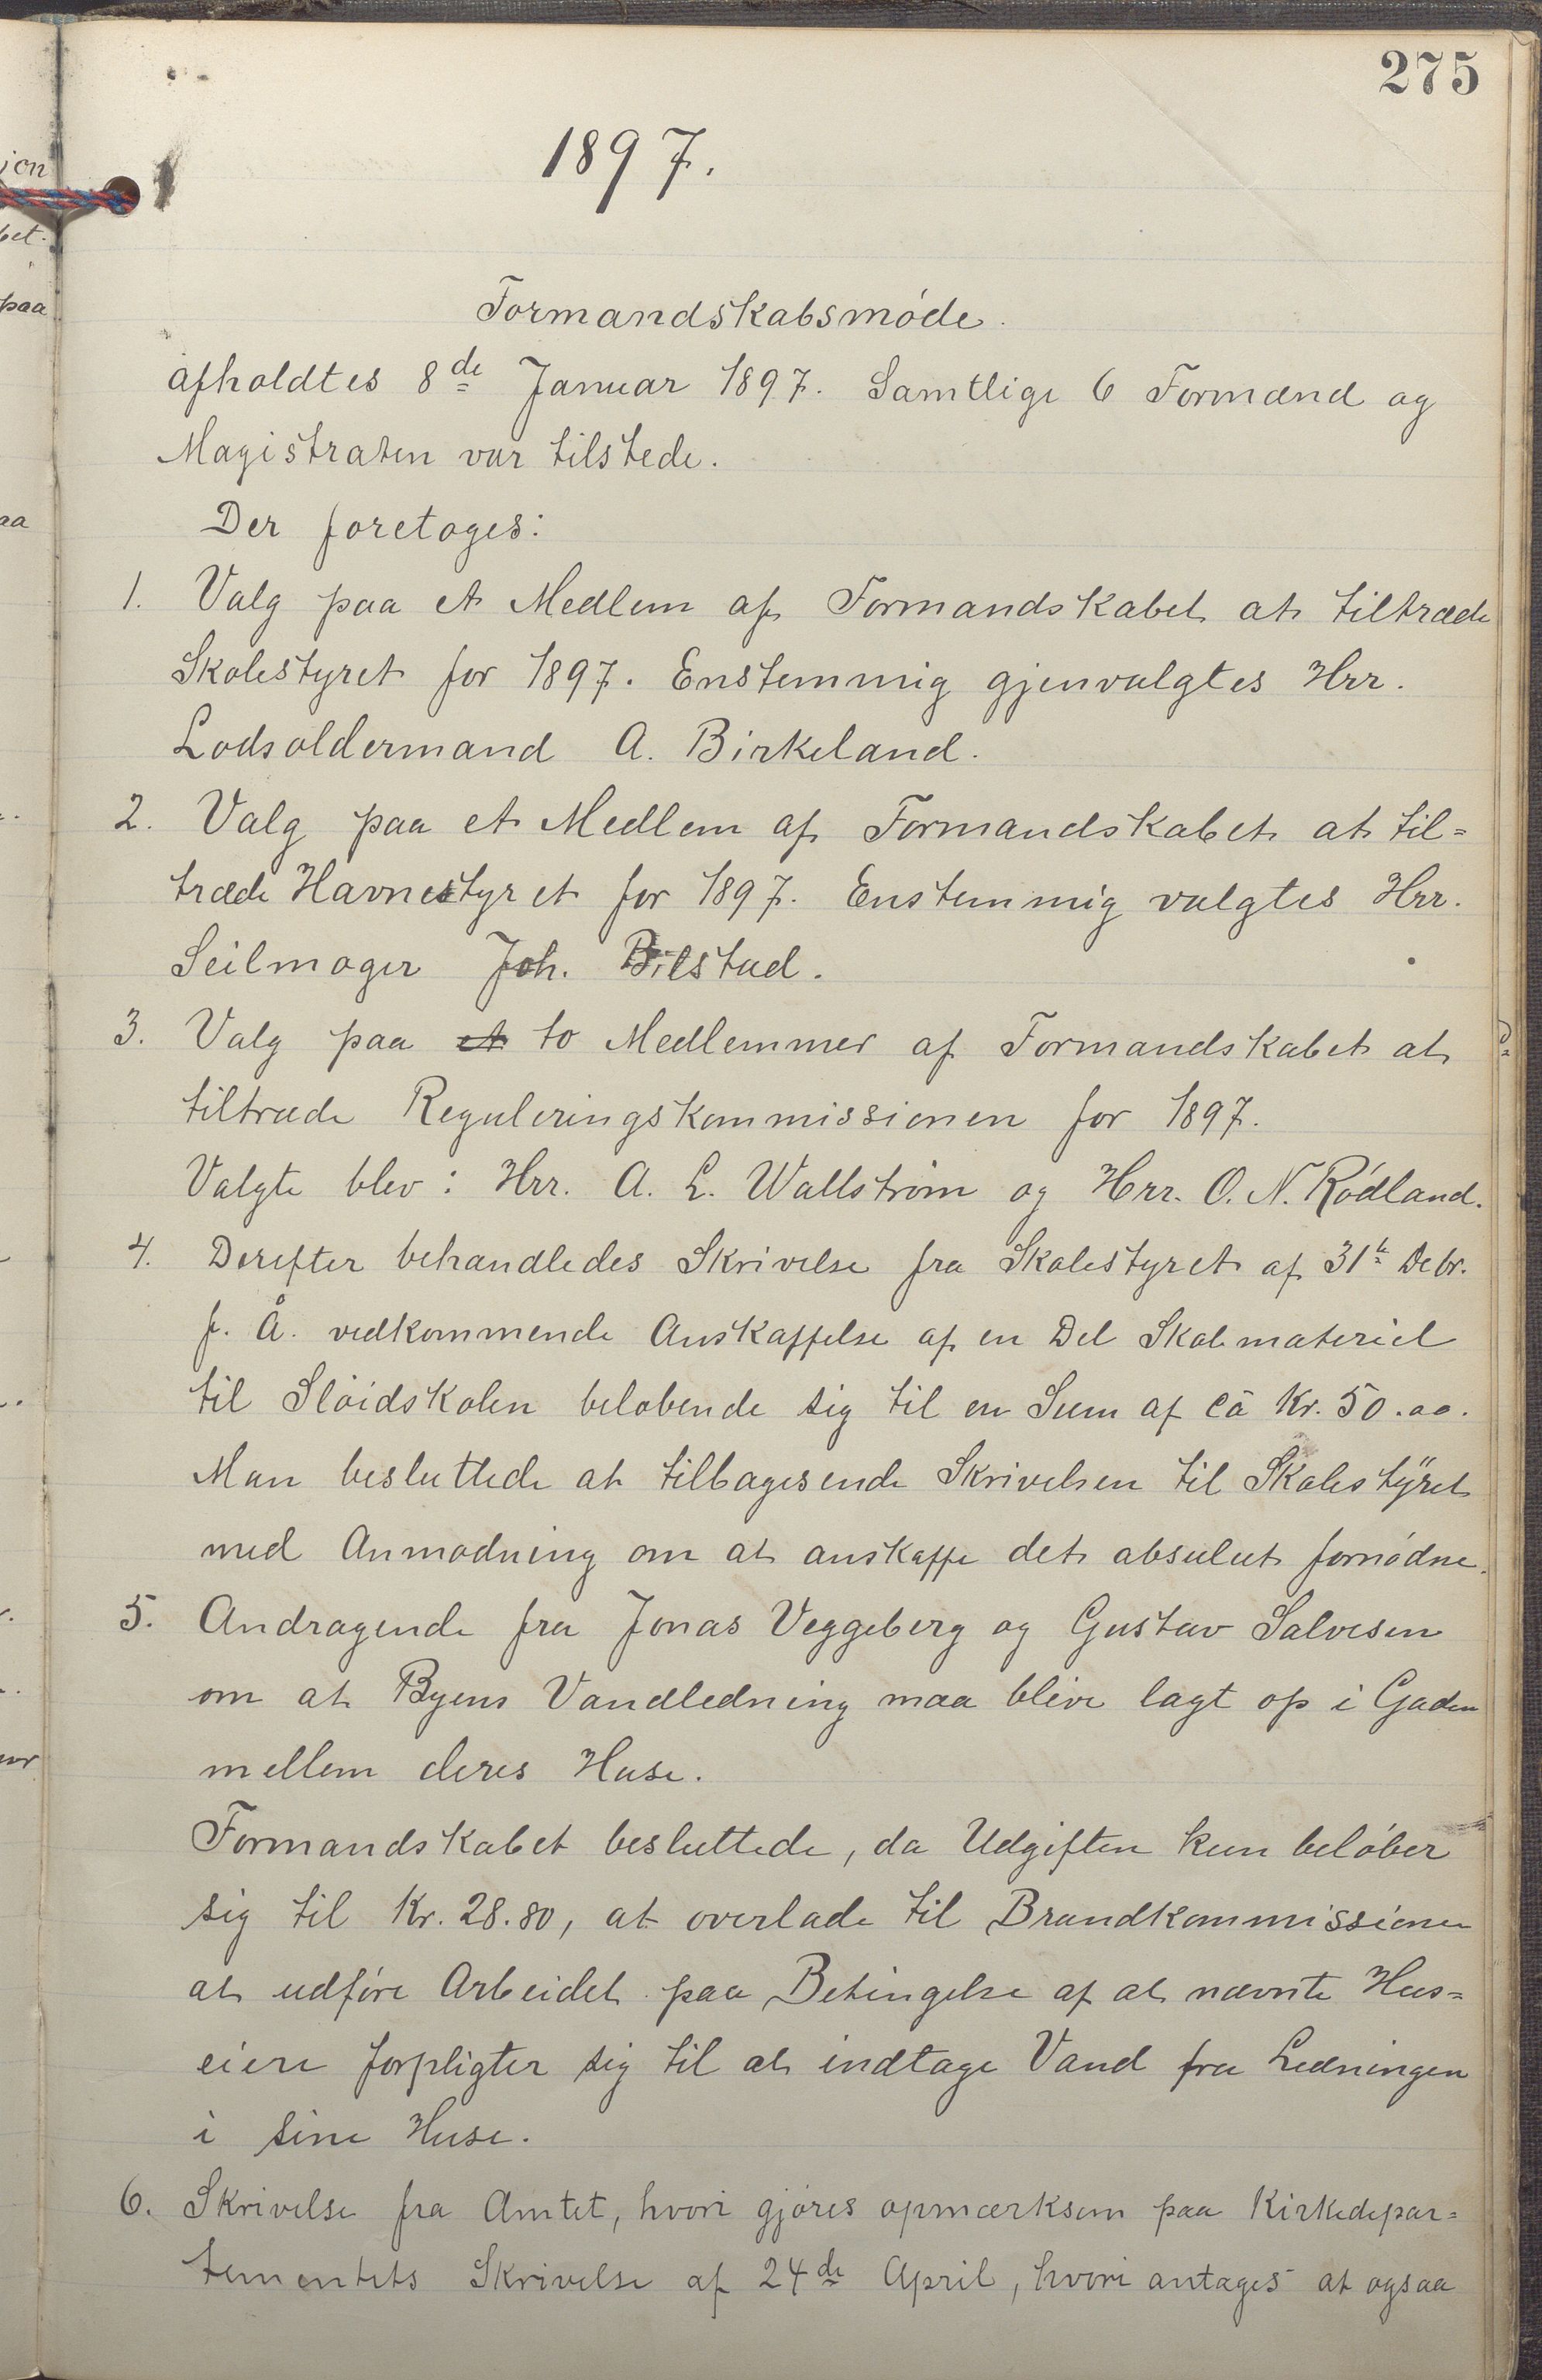 275
1897.
Formandskabsmøde.
afholdtes 8de Januar 1897. Samtlige 6 Formænd og
Magistraten var tilstede.
Der foretoges:
1. Valg paa et Medlem af Formandskabet at tiltræde
Skolestyret for 1897. Enstemmig gjenvalgtes Hrr.
Lodsoldermand A. Birkeland.
2. Valg paa et Medlem af Formandskabet at til=
træde Havnestyret for 1897. Enstemmig valgtes Hrr.
Seilmager Joh. Bilstad.
3. Valg paa et to Medlemmer af Formandskabet at
tiltræde Reguleringskommissionen for 1897.
Valgte blev: Hrr. A. L. Wallstrøm og Hrr. O. N. Rødland.
4. Derefter behandledes Skrivelse fra Skolestyret af 31te Debr.
f. Å. vedkommende Anskaffelse af en Del Skolemateriel
til Sløidskolen beløbende sig til en Sum af ca Kr. 50.00.
Man besluttede at tilbagesende Skrivelsen til Skolestÿret
med Anmodning om at anskaffe det absolut fornødne.
5. Andragende fra Jonas Veggeberg og Gustav Salvesen
om at Byens Vandledning maa blive lagt op i Gaden
mellem deres Huse.
Formandskabet besluttede, da Udgiften kun beløber
sig til Kr. 28.80, at overlade til Brandkommissionen
at udføre Arbeidet paa Betingelse af at nævnte Hus=
eiere forpligter sig til at indtage Vand fra Ledningen
i sine Huse.
6. Skrivelse fra Amtet, hvori gjøres opmærksom paa Kirkedepar=
tementets Skrivelse af 24de April, hvori antages at ogsaa